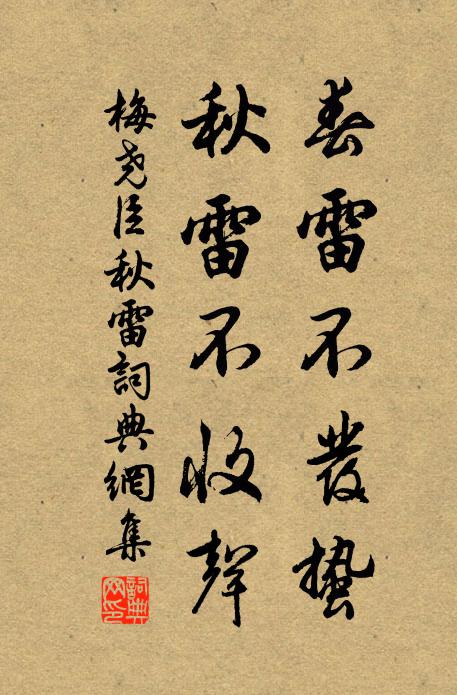 春雷不發蟄
秋雷不收聲
梅堯臣秋雷詞典網集
詞典網印